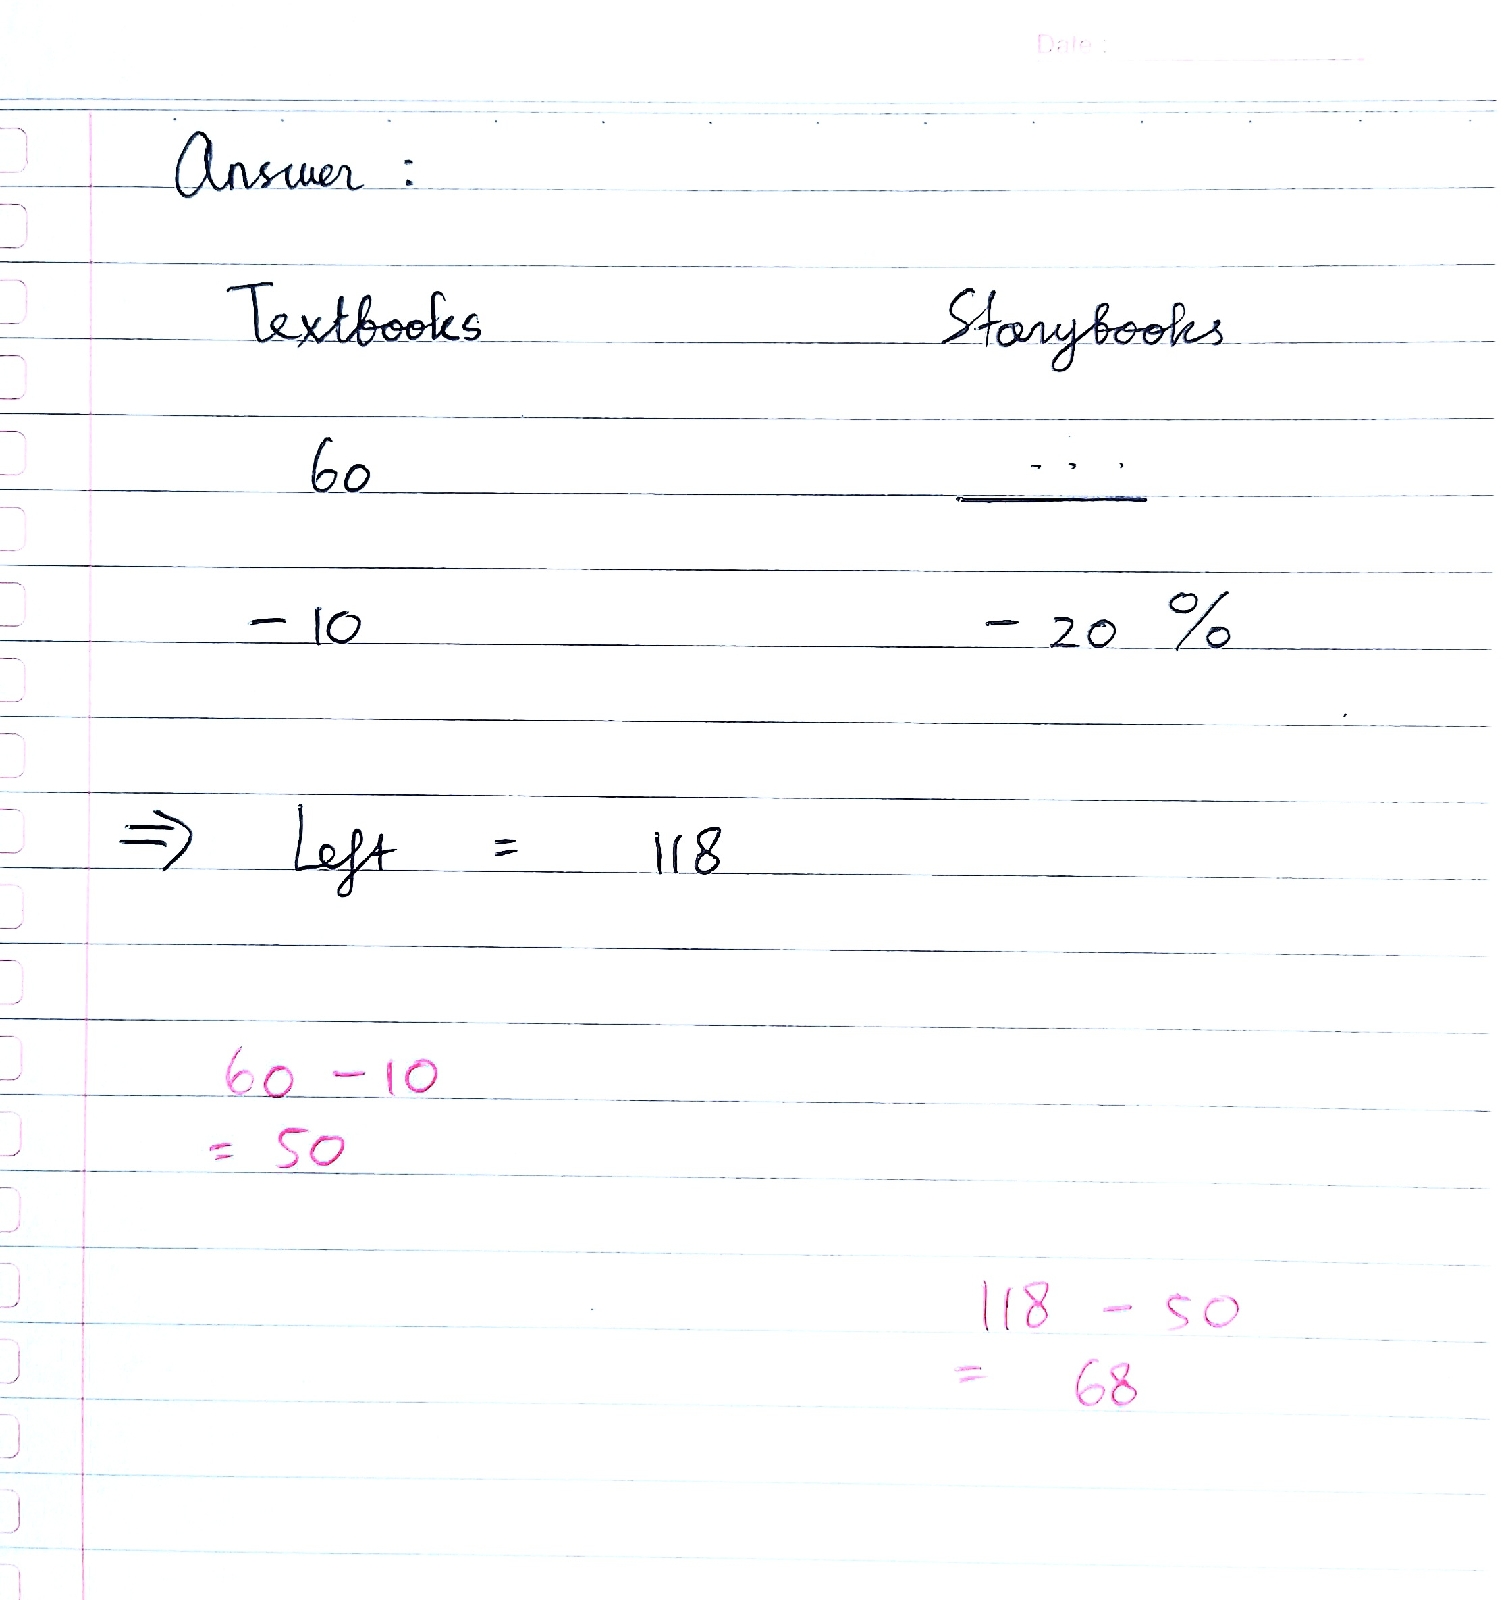 Date :
Answer :
Textbooks Storybooks
60 ...
- 10 - 20 %
⇒ Left = 118
60 - 10
= 50
118 - 50
= 68